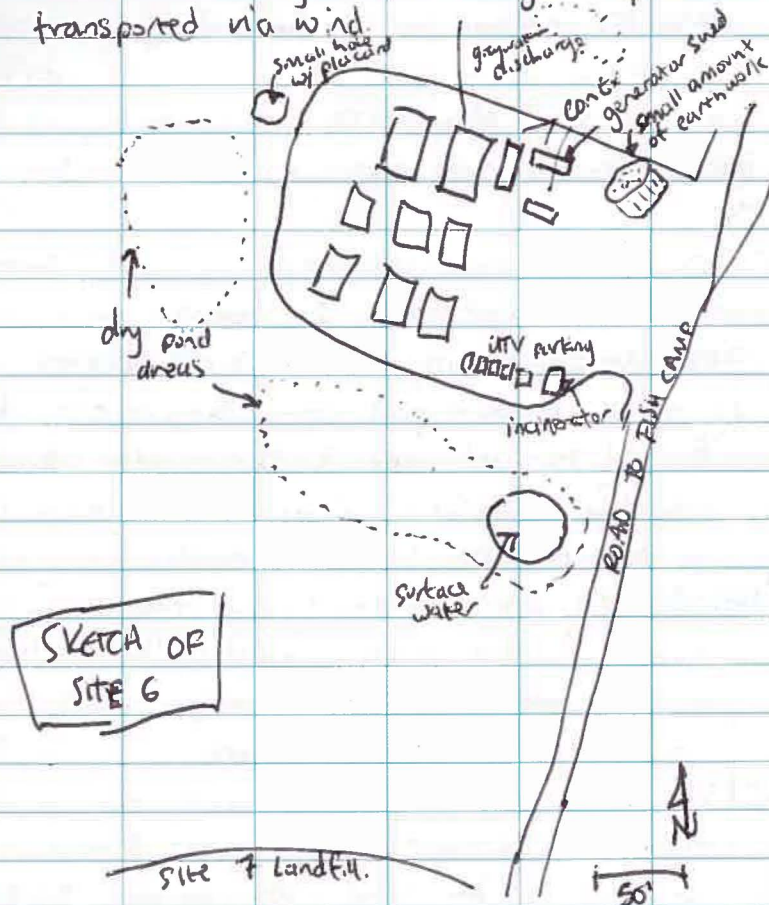 transported via wind.
small hole
w/ placard
greywater
discharge
conex
generator shed
small amount
of earthwork
dry pond
areas
UTV parking
incinerator
ROAD TO FISH CAMP
surface
water
SKETCH OF
SITE 6
N
Site 7 Landfill.
50'